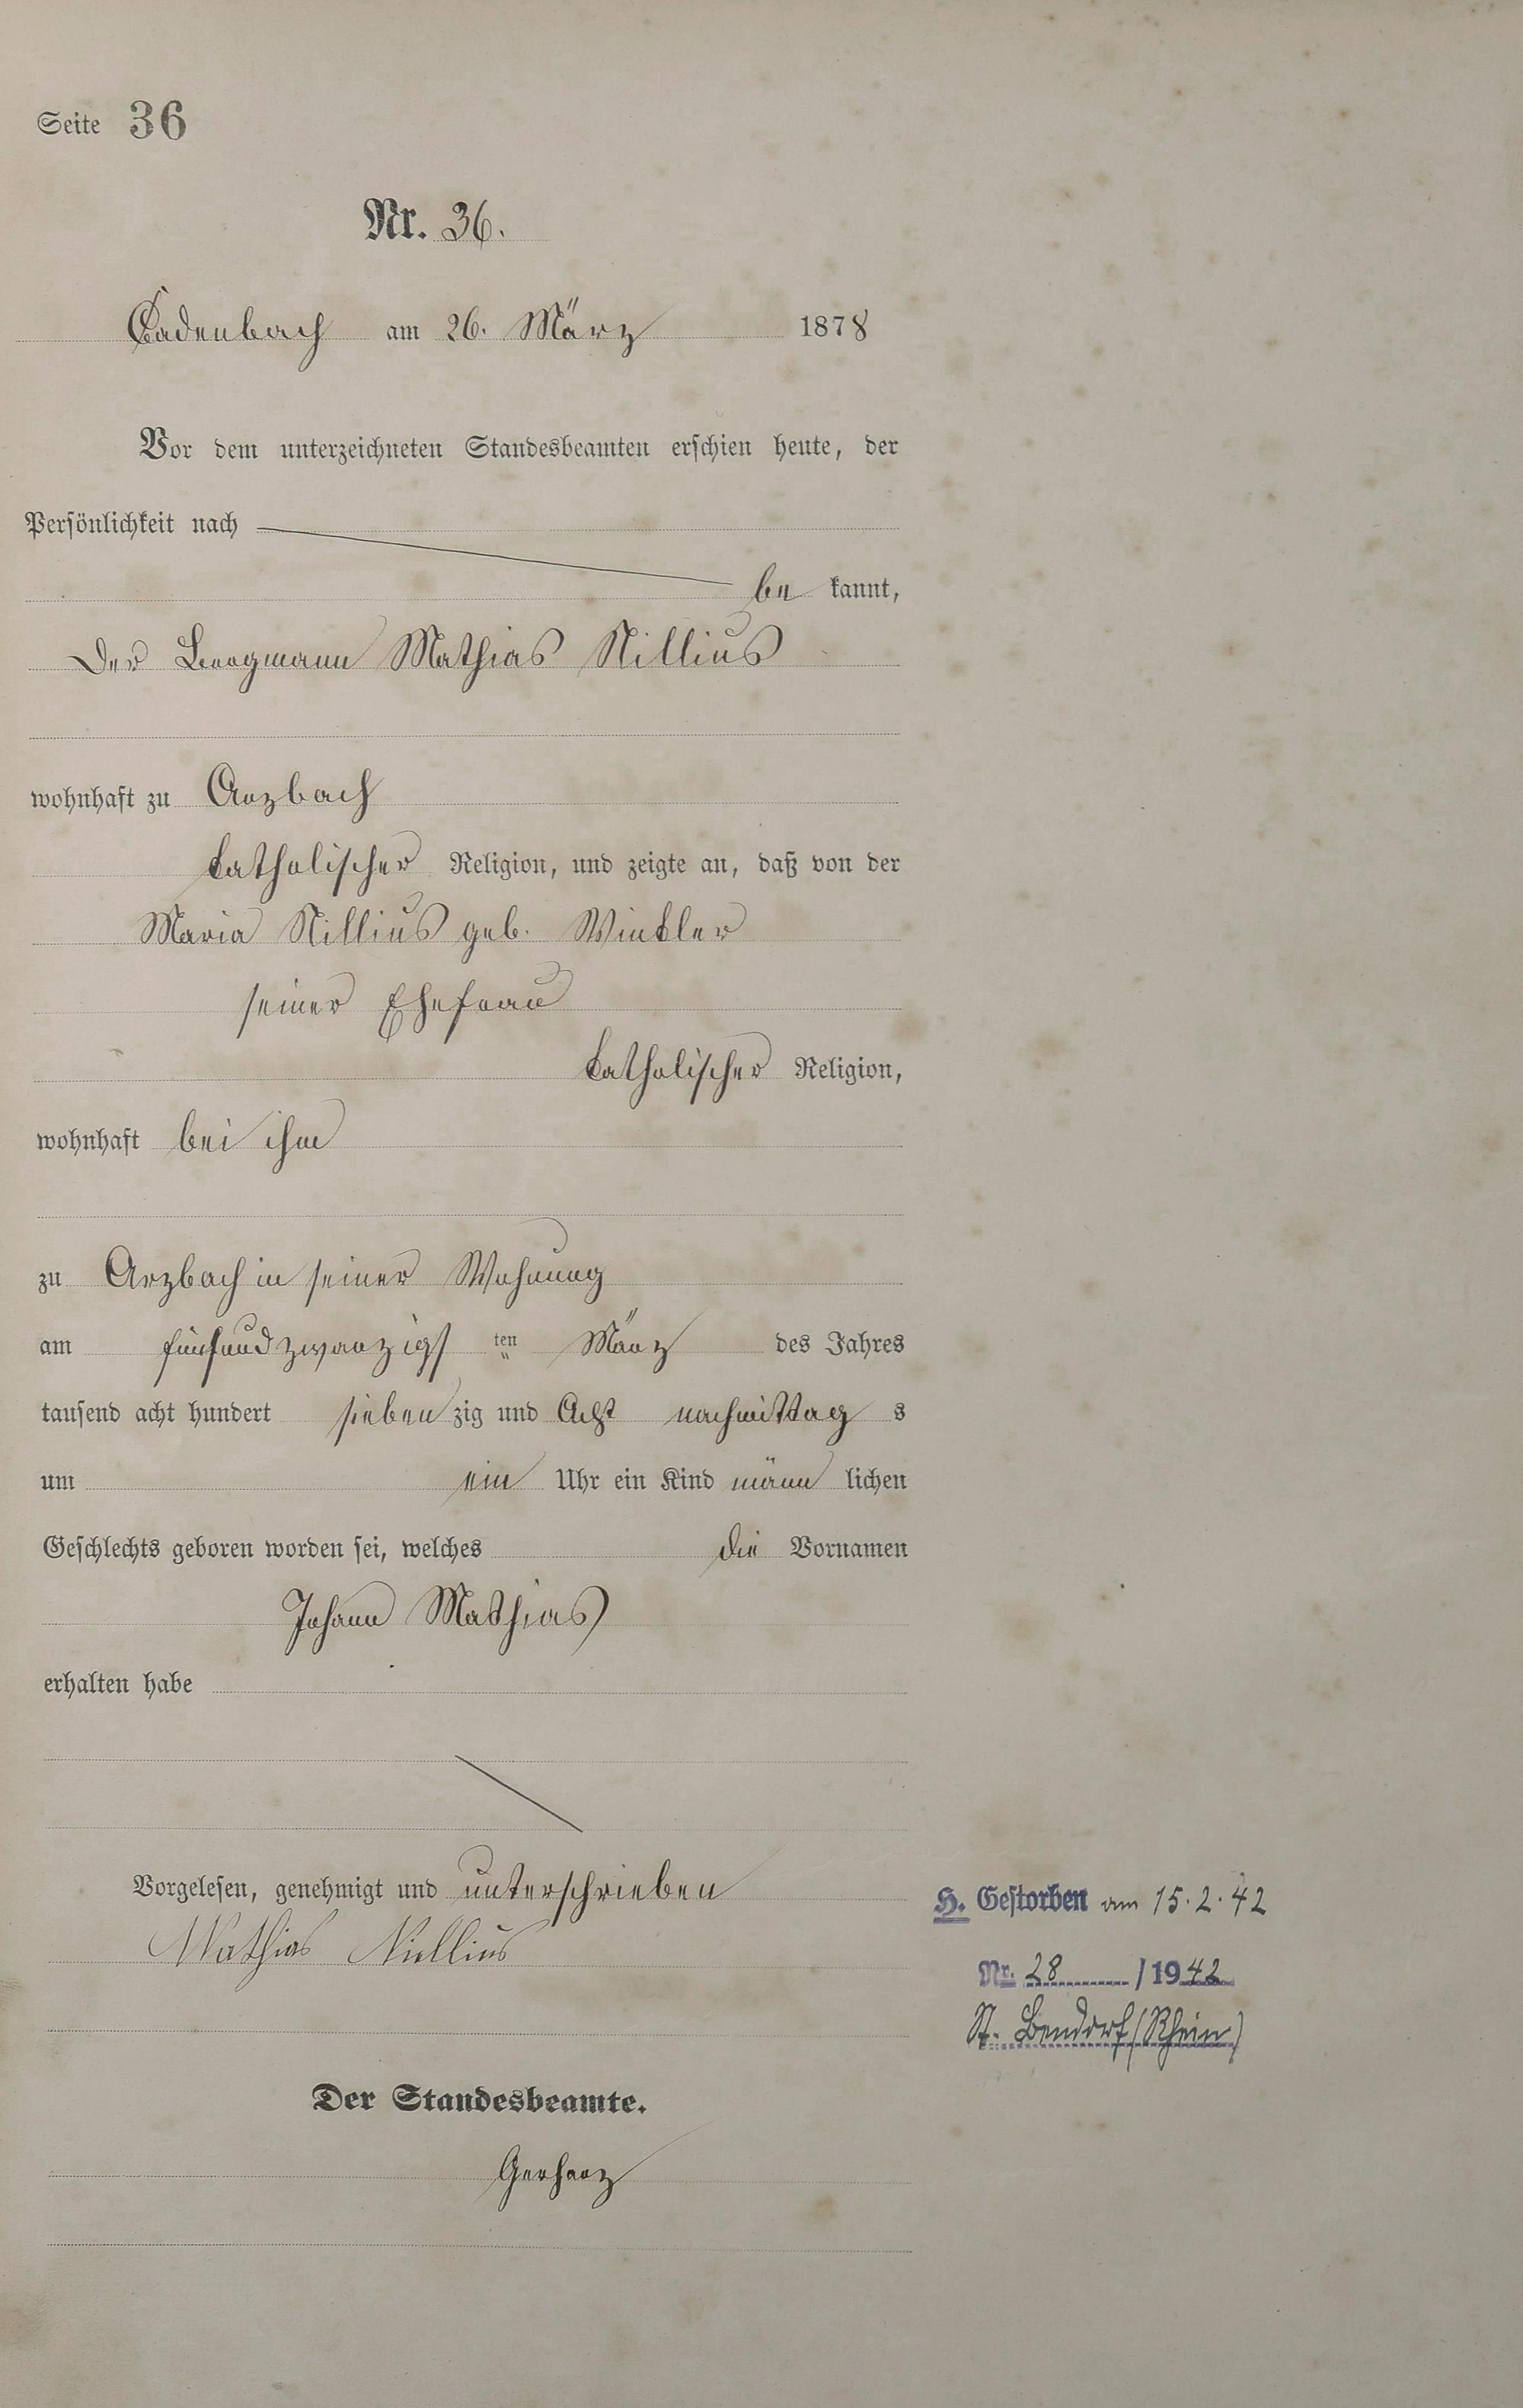 Seite 36
Nr. 36.
Cadenbach am 26. März 1878
Vor dem unterzeichneten Standesbeamten erschien heute, der
Persönlichkeit nach
be kannt,
Der Bergmann Mathias Nillius
wohnhaft zu Arzbach
katholischer Religion, und zeigte an, daß von der
Maria Nillius geb. Winkler
seiner Ehefrau
katholischer Religion,
wohnhaft bei ihm
zu Arzbach in seiner Wohnung
am fünfundzwanzigs ten März des Jahres
tausend acht hundert sieben zig und Acht nachmittag s
um ein Uhr ein Kind männ lichen
Geschlechts geboren worden sei, welches die Vornamen
Johann Mathias
erhalten habe
Vorgelesen, genehmigt und unterschrieben
Mathias Niellius
Der Standesbeamte.
Gerharz
H. Gestorben am 15.2.42
Nr. 28 / 1942
St. Bendorf (Rhein)